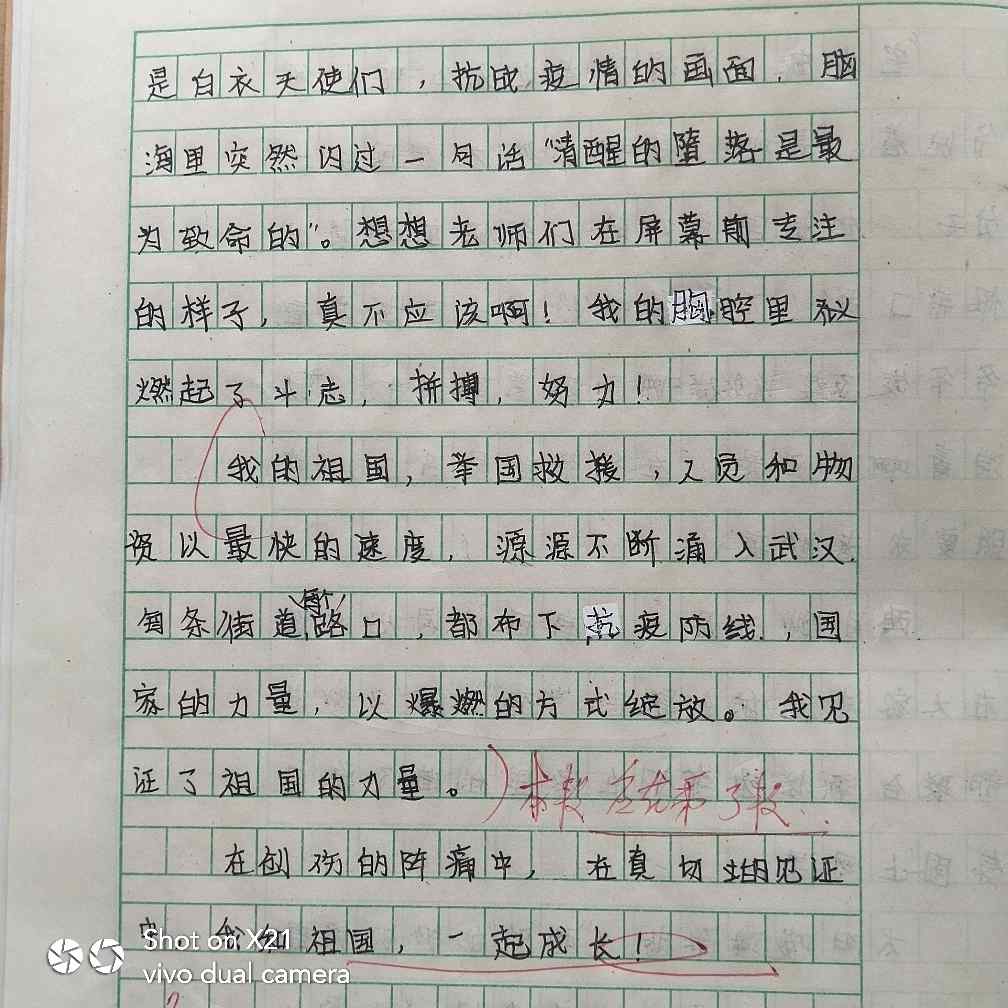 是白衣天使们，抗战疫情的画面，脑
海里突然闪过一句话"清醒的堕落是最
为致命的"。想想老师们在屏幕前专注
的样子，真不应该啊！我的胸腔里似
燃起了斗志，拼搏，努力！
我的祖国，举国救援，人员和物
资以最快的速度，源源不断涌入武汉.
每条街道,每个路口，都布下抗疫防线，国
家的力量，以爆燃的方式绽放。我见
证了祖国的力量。
本段
了段
在创伤的阵痛中，在真切地见证
中 我和祖国，一起成长！
Shot on X21
vivo dual camera